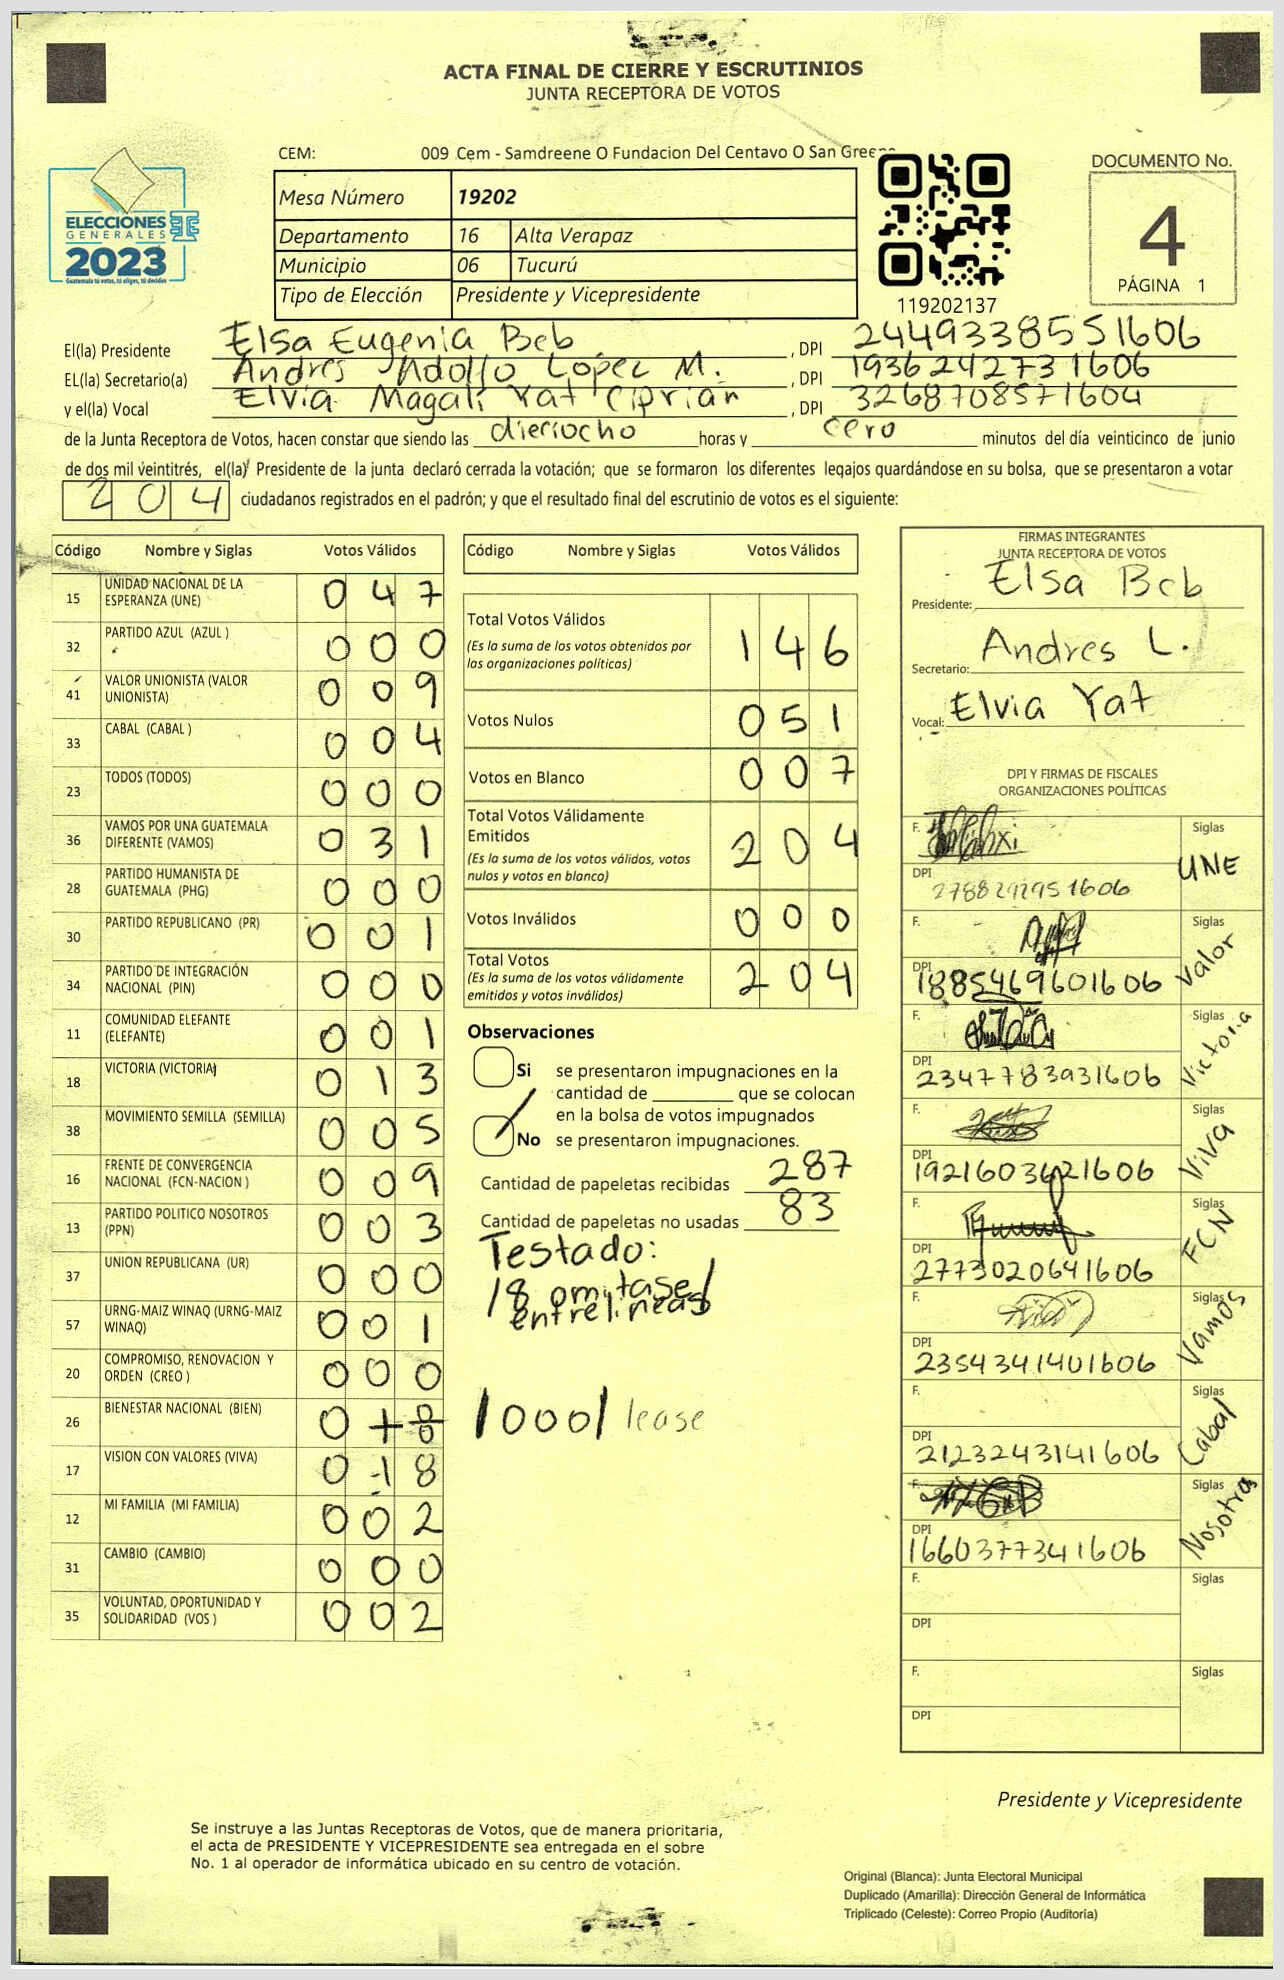 ACTA FINAL DE CIERRE Y ESCRUTINIOS
JUNTA RECEPTORA DE VOTOS
CEM: 009 Cem - Samdreene O Fundacion Del Centavo O San Greene
ELECCIONES
GENERALES
2023
Guatemala tú votas, tú eliges, tú decides
Mesa Número 19202
Departamento 16 Alta Verapaz
Municipio 06 Tucurú
Tipo de Elección Presidente y Vicepresidente
119202137
DOCUMENTO No.
4
PÁGINA 1
El(la) Presidente Elsa Eugenia Bcb , DPI 2449338551606
EL(la) Secretario(a) Andres Adolfo Lopez M. , DPI 1936242731606
y el(la) Vocal Elvia Magali Yat Ciprian , DPI 3268708571604
de la Junta Receptora de Votos, hacen constar que siendo las dieciocho horas y cero minutos del día veinticinco de junio
de dos mil veintitrés, el(la) Presidente de la junta declaró cerrada la votación; que se formaron los diferentes legajos guardándose en su bolsa, que se presentaron a votar
204 ciudadanos registrados en el padrón; y que el resultado final del escrutinio de votos es el siguiente:
Código Nombre y Siglas Votos Válidos
15 UNIDAD NACIONAL DE LA ESPERANZA (UNE) 047
32 PARTIDO AZUL (AZUL ) 000
41 VALOR UNIONISTA (VALOR UNIONISTA) 009
33 CABAL (CABAL ) 004
23 TODOS (TODOS) 000
36 VAMOS POR UNA GUATEMALA DIFERENTE (VAMOS) 031
28 PARTIDO HUMANISTA DE GUATEMALA (PHG) 000
30 PARTIDO REPUBLICANO (PR) 001
34 PARTIDO DE INTEGRACIÓN NACIONAL (PIN) 000
11 COMUNIDAD ELEFANTE (ELEFANTE) 001
18 VICTORIA (VICTORIA) 013
38 MOVIMIENTO SEMILLA (SEMILLA) 005
16 FRENTE DE CONVERGENCIA NACIONAL (FCN-NACION ) 009
13 PARTIDO POLITICO NOSOTROS (PPN) 003
37 UNION REPUBLICANA (UR) 000
57 URNG-MAIZ WINAQ (URNG-MAIZ WINAQ) 001
20 COMPROMISO, RENOVACION Y ORDEN (CREO ) 000
26 BIENESTAR NACIONAL (BIEN) 0
17 VISION CON VALORES (VIVA) 018
12 MI FAMILIA (MI FAMILIA) 002
31 CAMBIO (CAMBIO) 000
35 VOLUNTAD, OPORTUNIDAD Y SOLIDARIDAD (VOS ) 002
Código Nombre y Siglas Votos Válidos
Total Votos Válidos 146
(Es la suma de los votos obtenidos por
las organizaciones políticas)
Votos Nulos 051
Votos en Blanco 007
Total Votos Válidamente
Emitidos 204
(Es la suma de los votos válidos, votos
nulos y votos en blanco)
Votos Inválidos 000
Total Votos 204
(Es la suma de los votos válidamente
emitidos y votos inválidos)
Observaciones
Si se presentaron impugnaciones en la
cantidad de ________ que se colocan
en la bolsa de votos impugnados
No se presentaron impugnaciones.
Cantidad de papeletas recibidas 287
Cantidad de papeletas no usadas 83
Testado:
18 omitase/
entrelineas
/000/ lease
FIRMAS INTEGRANTES
JUNTA RECEPTORA DE VOTOS
Presidente: Elsa Bcb
Secretario: Andres L.
Vocal: Elvia Yat
DPI Y FIRMAS DE FISCALES
ORGANIZACIONES POLÍTICAS
F. Siglas UNE
DPI
F. Siglas Valor
DPI 1885469601606
F. Siglas Victoria
DPI 2347783931606
F. Siglas Viva
DPI 1921603621606
F. Siglas FCN
DPI 2773020641606
F. Siglas Vamos
DPI 2354341401606
F. Siglas Cabal
DPI 2123243141606
F. Siglas Nosotros
DPI 1660377341606
F. Siglas
DPI
F. Siglas
DPI
Presidente y Vicepresidente
Se instruye a las Juntas Receptoras de Votos, que de manera prioritaria,
el acta de PRESIDENTE Y VICEPRESIDENTE sea entregada en el sobre
No. 1 al operador de informática ubicado en su centro de votación.
Original (Blanca): Junta Electoral Municipal
Duplicado (Amarilla): Dirección General de Informática
Triplicado (Celeste): Correo Propio (Auditoría)